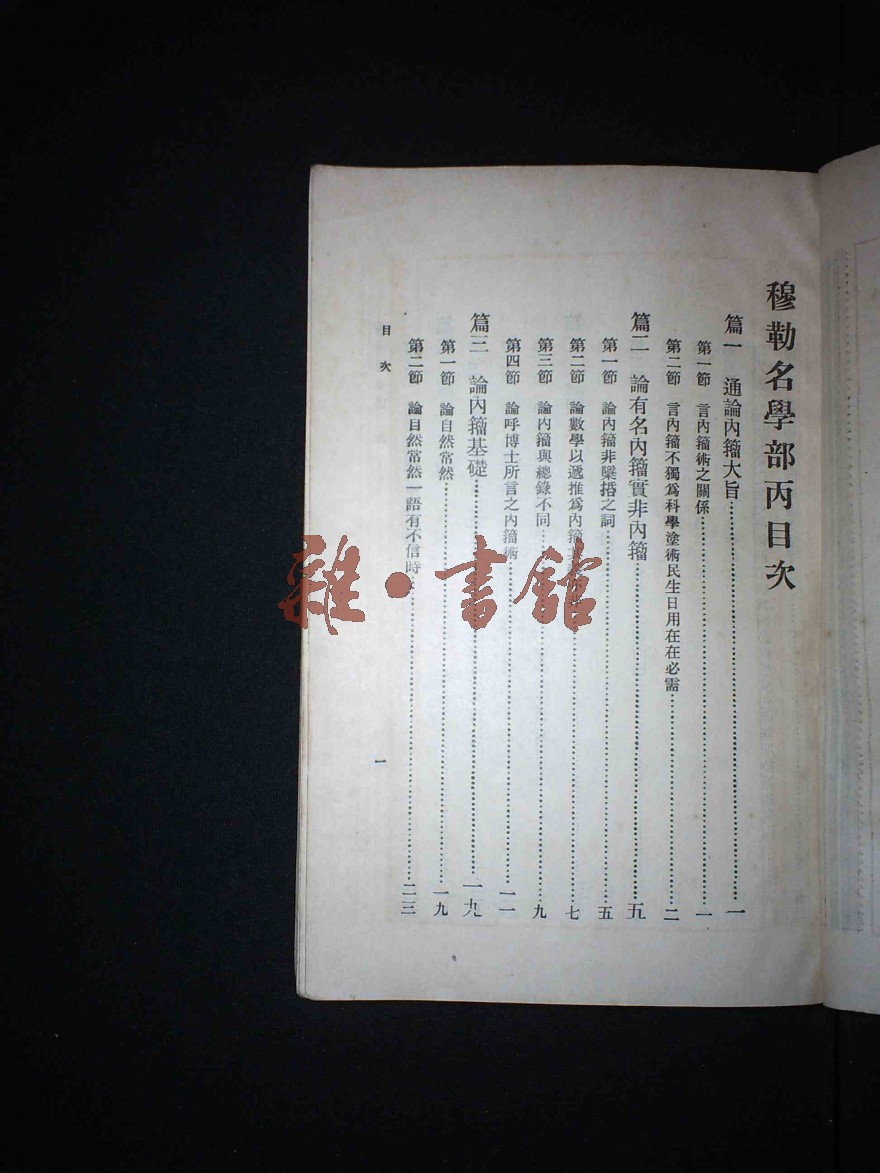 穆勒名學部丙目次
篇一 通論內籀大旨 一
第一節 言內籀術之關係 一
第二節 言內籀不獨爲科學塗術民生日用在在必需 二
篇二 論有名內籀實非內籀 五
第一節 論內籀非檃栝之詞 五
第二節 論數學以遞推爲內籀 七
第三節 論內籀與總錄不同 九
第四節 論呼博士所言之內籀術 一一
篇三 論內籀基礎 一九
第一節 論自然常然 一九
第二節 論自然常然一語有不信時 二三
目次
一
雜·書館